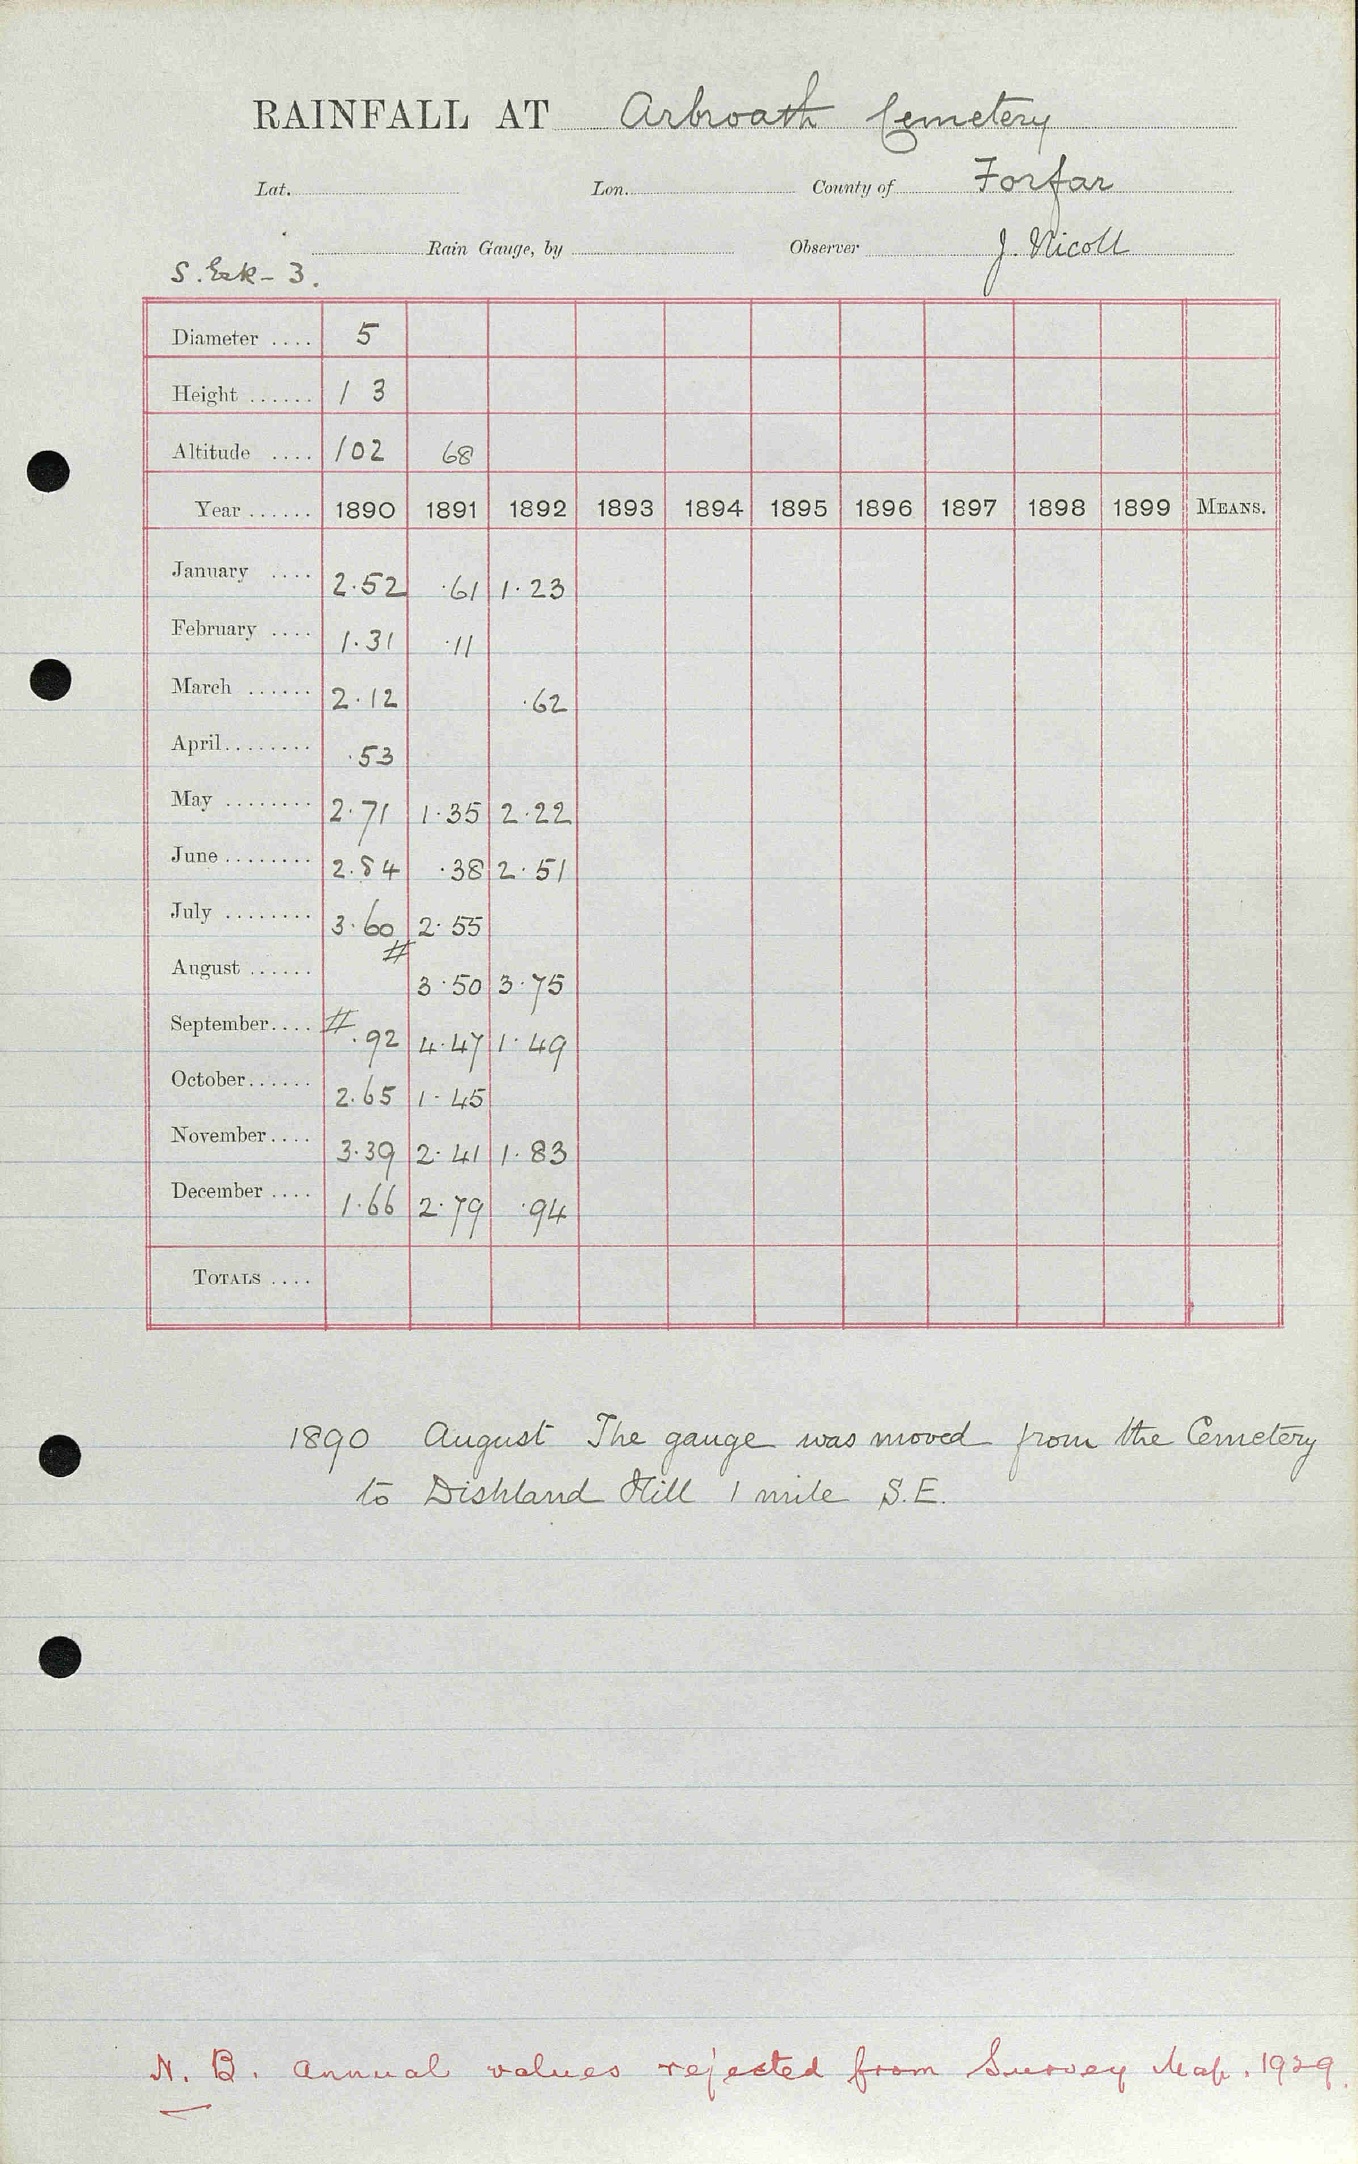 RAINFALL AT Arbroath Cemetery
Lat. Lon. County of Forfar
Rain Gauge, by Observer J. Nicoll
S. Esk - 3.
Diameter .... 5
Height ...... 1 3
Altitude .... 102 68
Year ...... 1890 1891 1892 1893 1894 1895 1896 1897 1898 1899 MEANS.
January .... 2.52 .61 1.23
February .... 1.31 .11
March ...... 2.12 .62
April ........ .53
May ........ 2.71 1.35 2.22
June ........ 2.84 .38 2.51
July ........ 3.60 2.55
August ...... # 3.50 3.75
September .... # .92 4.47 1.49
October ...... 2.65 1.45
November .... 3.39 2.41 1.83
December .... 1.66 2.79 .94
TOTALS ....
1890 August The gauge was moved from the Cemetery
to Dishland Hill 1 mile S.E.
N.B. Annual values rejected from Survey Map. 1929.